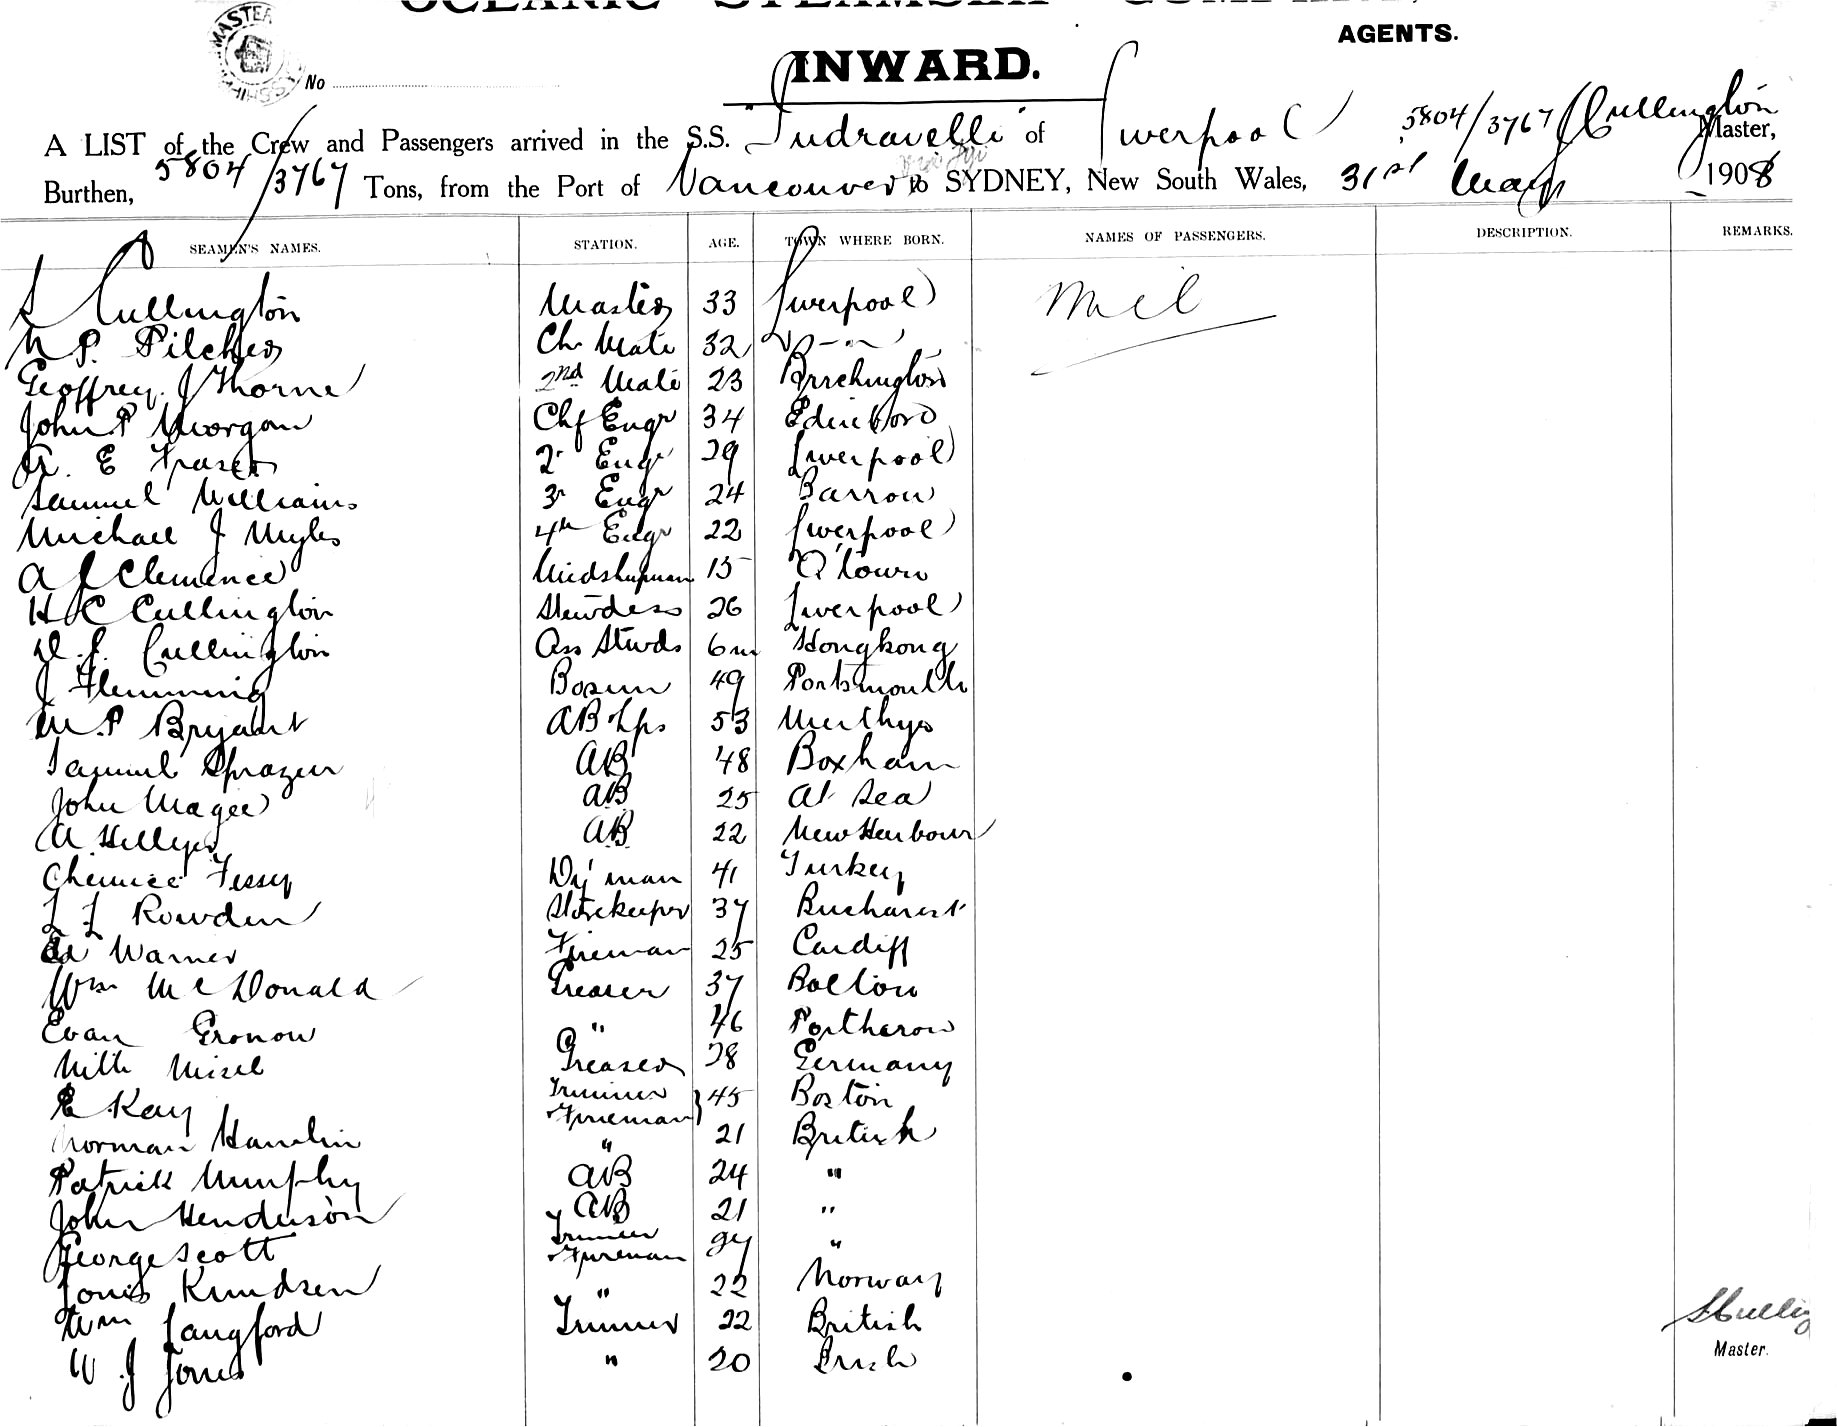 OCEANIC STEAMSHIP COMPANY,
AGENTS.
MASTER
INWARD.
No
A LIST of the Crew and Passengers arrived in the S.S. "Indravelli" of Liverpool 5804/3767 S Cullington Master,
Burthen, 5804/3767 Tons, from the Port of Vancouver to SYDNEY, New South Wales, 31st May 1908
SEAMEN'S NAMES. STATION. AGE. TOWN WHERE BORN. NAMES OF PASSENGERS. DESCRIPTION. REMARKS.
S Cullington Master 33 Liverpool Nil
N P. Pilcher Ch Mate 32
Geoffrey J Thorne 2nd Mate 23 Birchington
John P Morgan Chf Engr 34 Edinboro
A. E Fraser 2r Engr 29 Liverpool
Samuel Williams 3r Engr 24 Barrow
Michael J Myles 4th Engr 22 Liverpool
A J Clemence Midshipman 15 Q'town
H C Cullington Stewdess 26 Liverpool
D. S. Cullington Ass Stwds 6m Hongkong
J Flemming Bosun 49 Portsmouth
M. P Bryant AB Lps 53 Merthyr
Samuel AB 48 Boxham
John Magee AB 25 At Sea
A Hellyer AB 22 New Harbour
Fessy Dy man 41 Turkey
Rowden Storekeeper 37 Bucharest
Ed Warner Fireman 25 Cardiff
Wm McDonald Greaser 37 Bolton
Evan Gronow " 46
Greaser 28 Germany
E Kay Trimmer Fireman } 45 Boston
Norman Hamlin " 21 British
Patrick Murphy AB 24 "
John Henderson AB 21 "
George Scott Trimmer Fireman "
Knudsen " 22 Norway
Wm Langford Trimmer 22 British
W J Jones " 20 Irish
S Culling
Master.